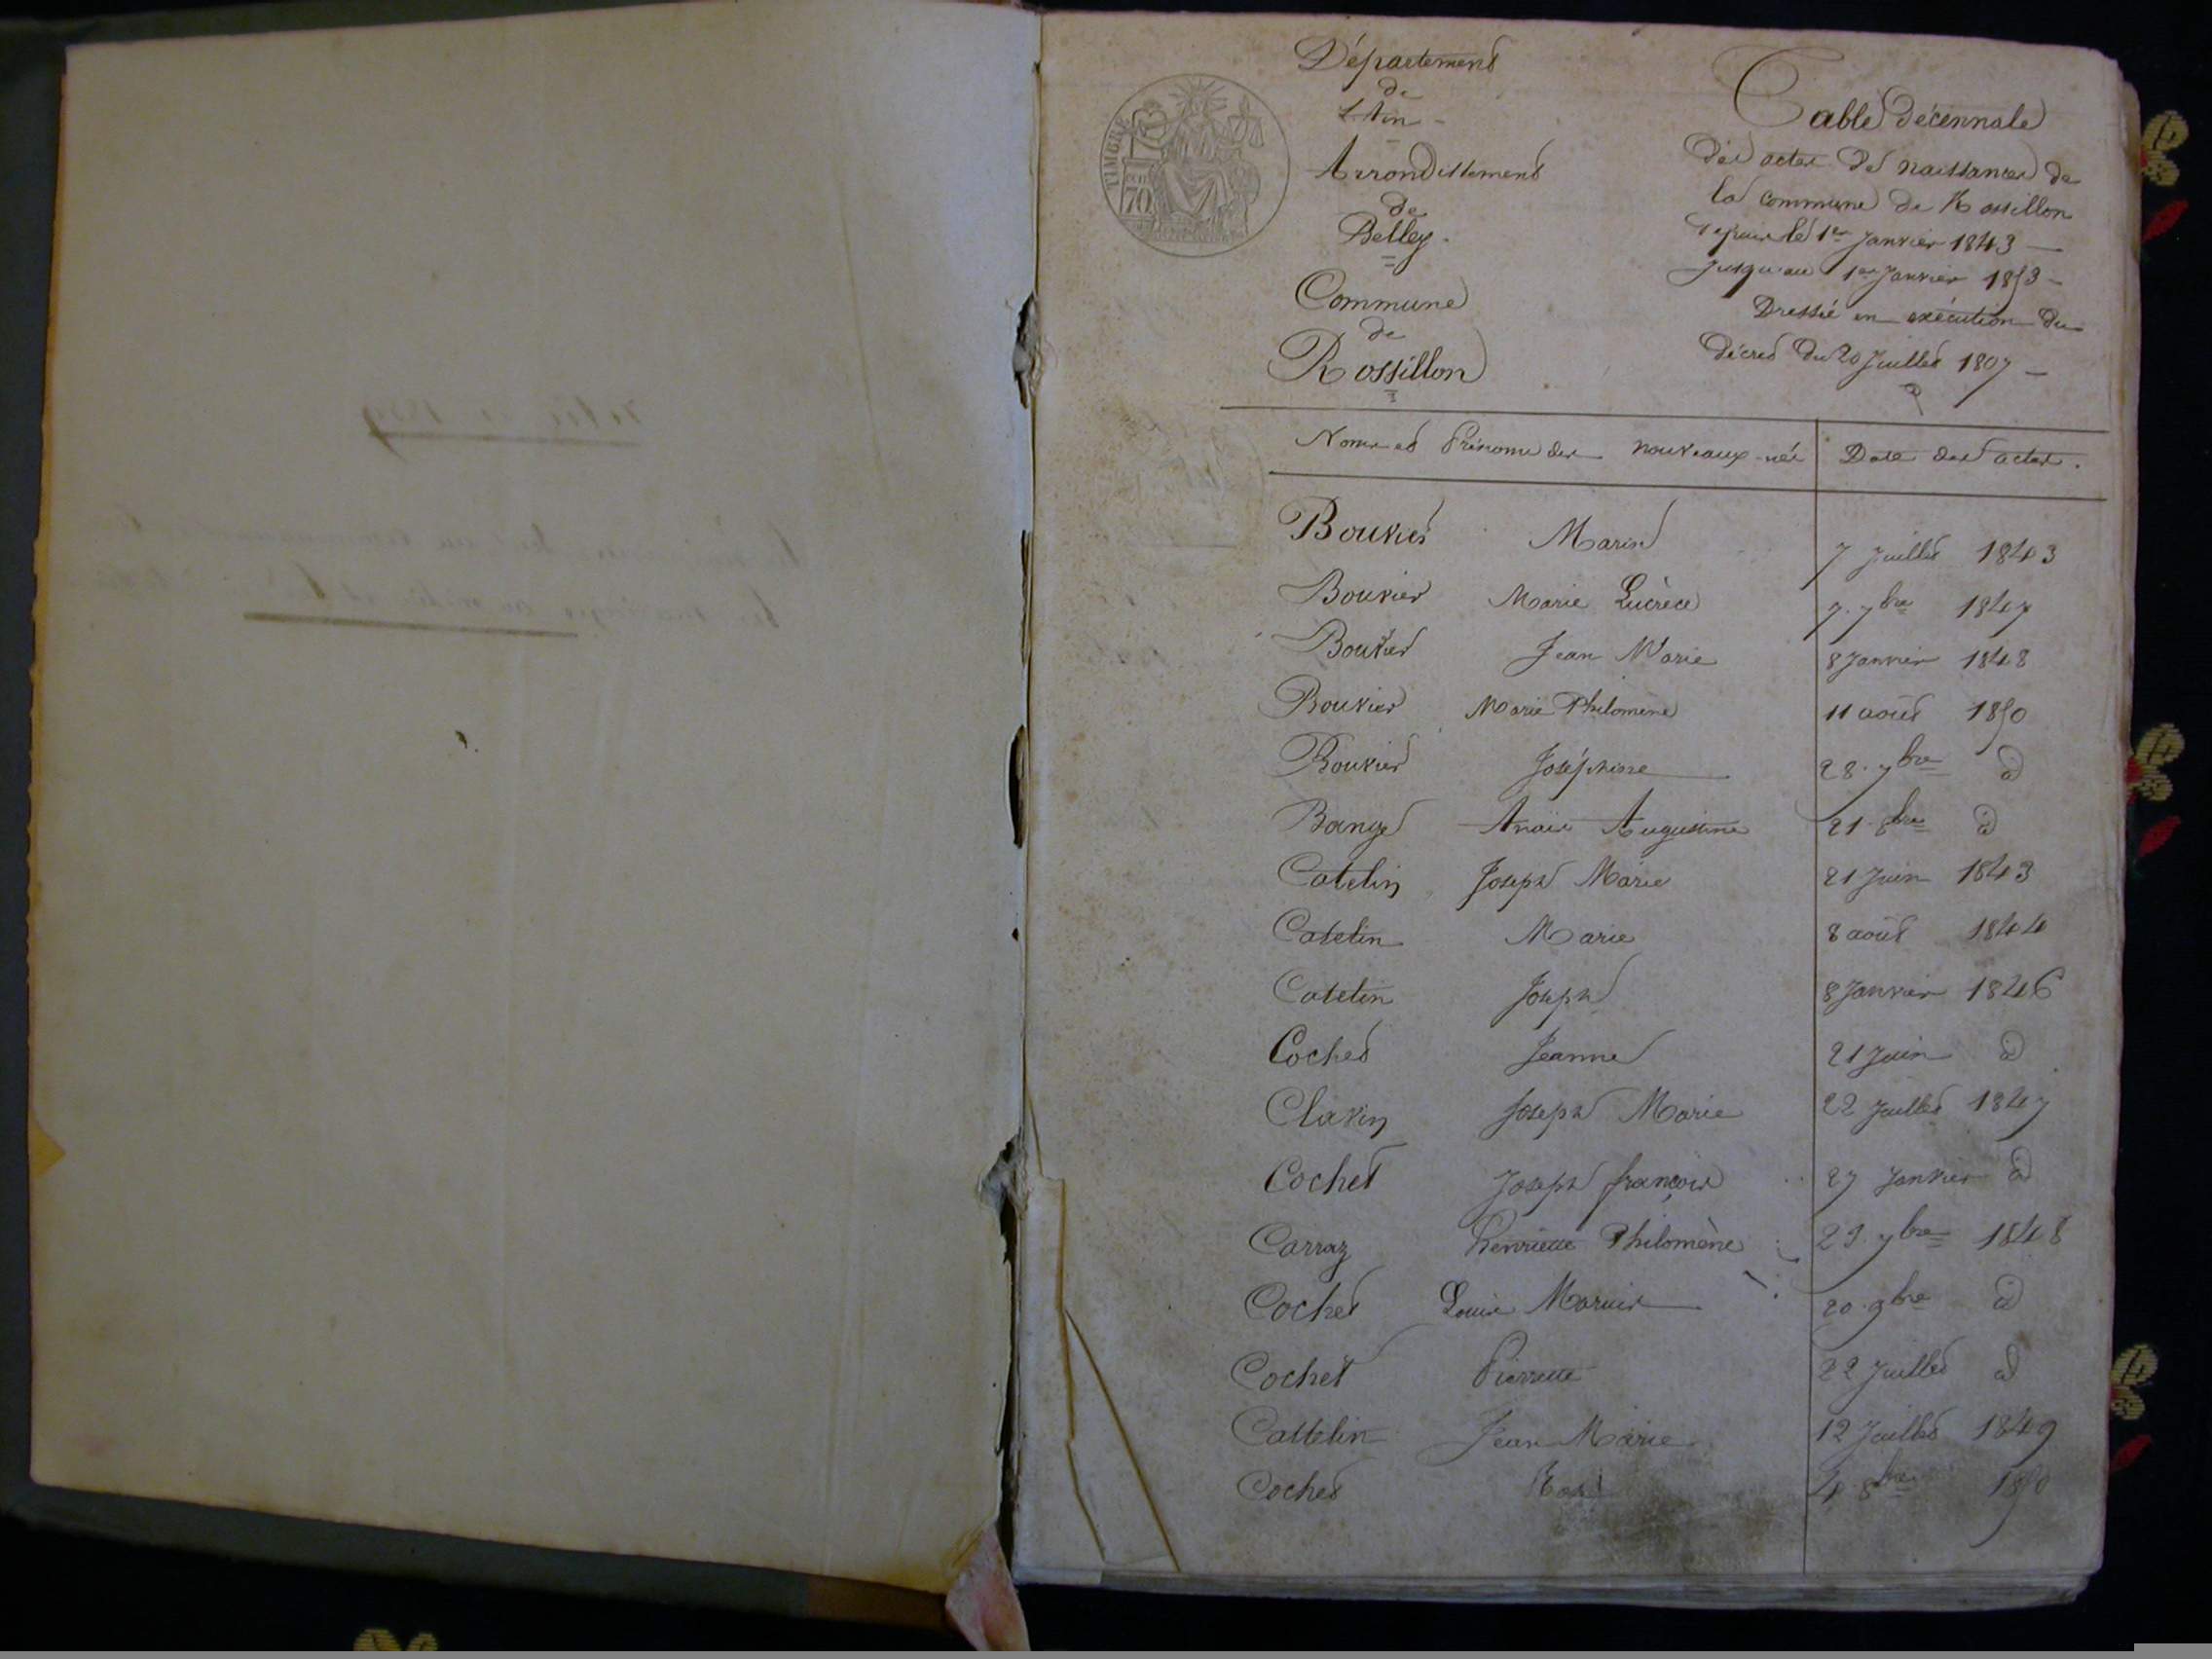 Département
de
l'Ain
Arrondissement
de
Belley.
Commune
de
Rossillon
TIMBRE
70
Table décennale
des actes de naissances de
la commune de Rossillon
depuis le 1er Janvier 1843 —
Jusqu'au 1er Janvier 1853 —
Dressée en exécution du
décret du 20 Juillet 1807 —
Noms et Prénoms des nouveaux-nés Date des actes.
Bouvier Marie 7 Juillet 1843
Bouvier Marie Lucrèce 7. 7bre 1847
Bouvier Jean Marie 8 Janvier 1848
Bouvier Marie Philomène 11 août 1850
Bouvier Joséphine 28. 7bre d
Bange Anaïs Augustine 21. 8bre d
Catelin Joseph Marie 21 Juin 1843
Catelin Marie 8 août 1844
Catelin Joseph 8 Janvier 1846
Cochet Jeanne 21 Juin d
Clavin Joseph Marie 22 Juillet 1847
Cochet Joseph françois 27 Janvier d
Carraz henriette Philomène 29. 7bre 1848
Cochet Louis Marius 20. 9bre d
Cochet Pierrette 22 Juillet d
Cattelin Jean Marie 12 Juillet 1849
Cochet 4 8bre 1850